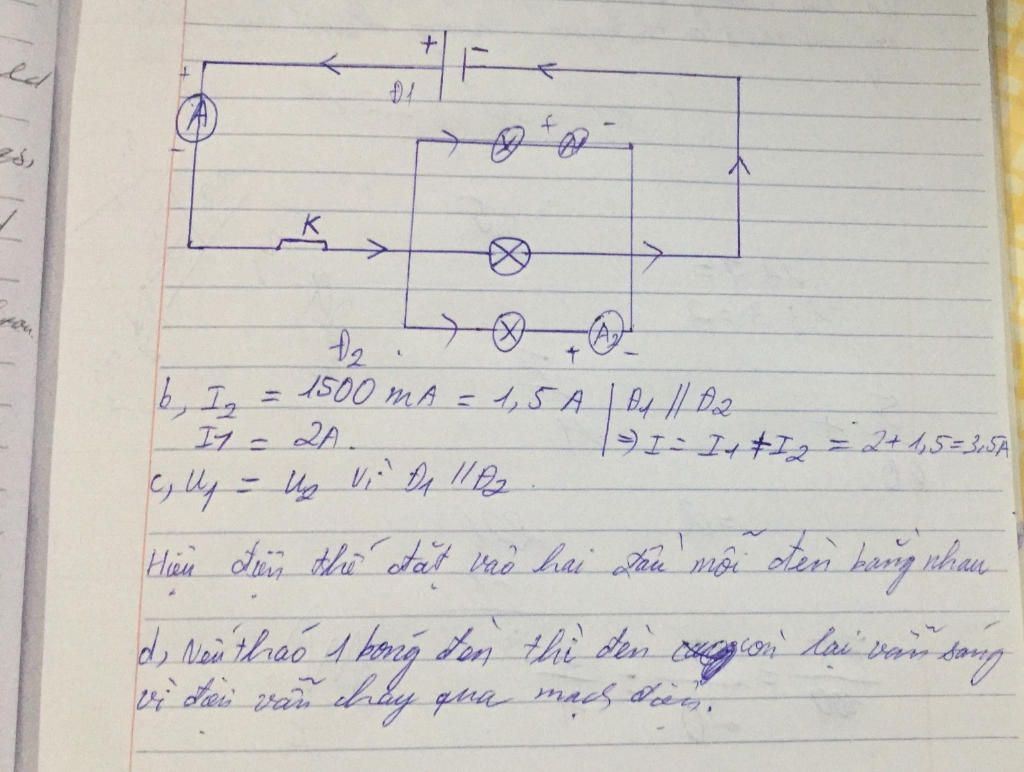 + -
+
Đ1
A
+ -
-
K
Đ2
A2
+ -
b, I2 = 1500 mA = 1,5 A | Đ1 // Đ2
I1 = 2A. | => I = I1 + I2 = 2 + 1,5 = 3,5A
c, U1 = U2 vì Đ1 // Đ2.
Hiệu điện thế đặt vào hai đầu mỗi đèn bằng nhau
d, Nếu tháo 1 bóng đèn thì đèn còn lại vẫn sáng
vì điện vẫn chạy qua mạch điện.